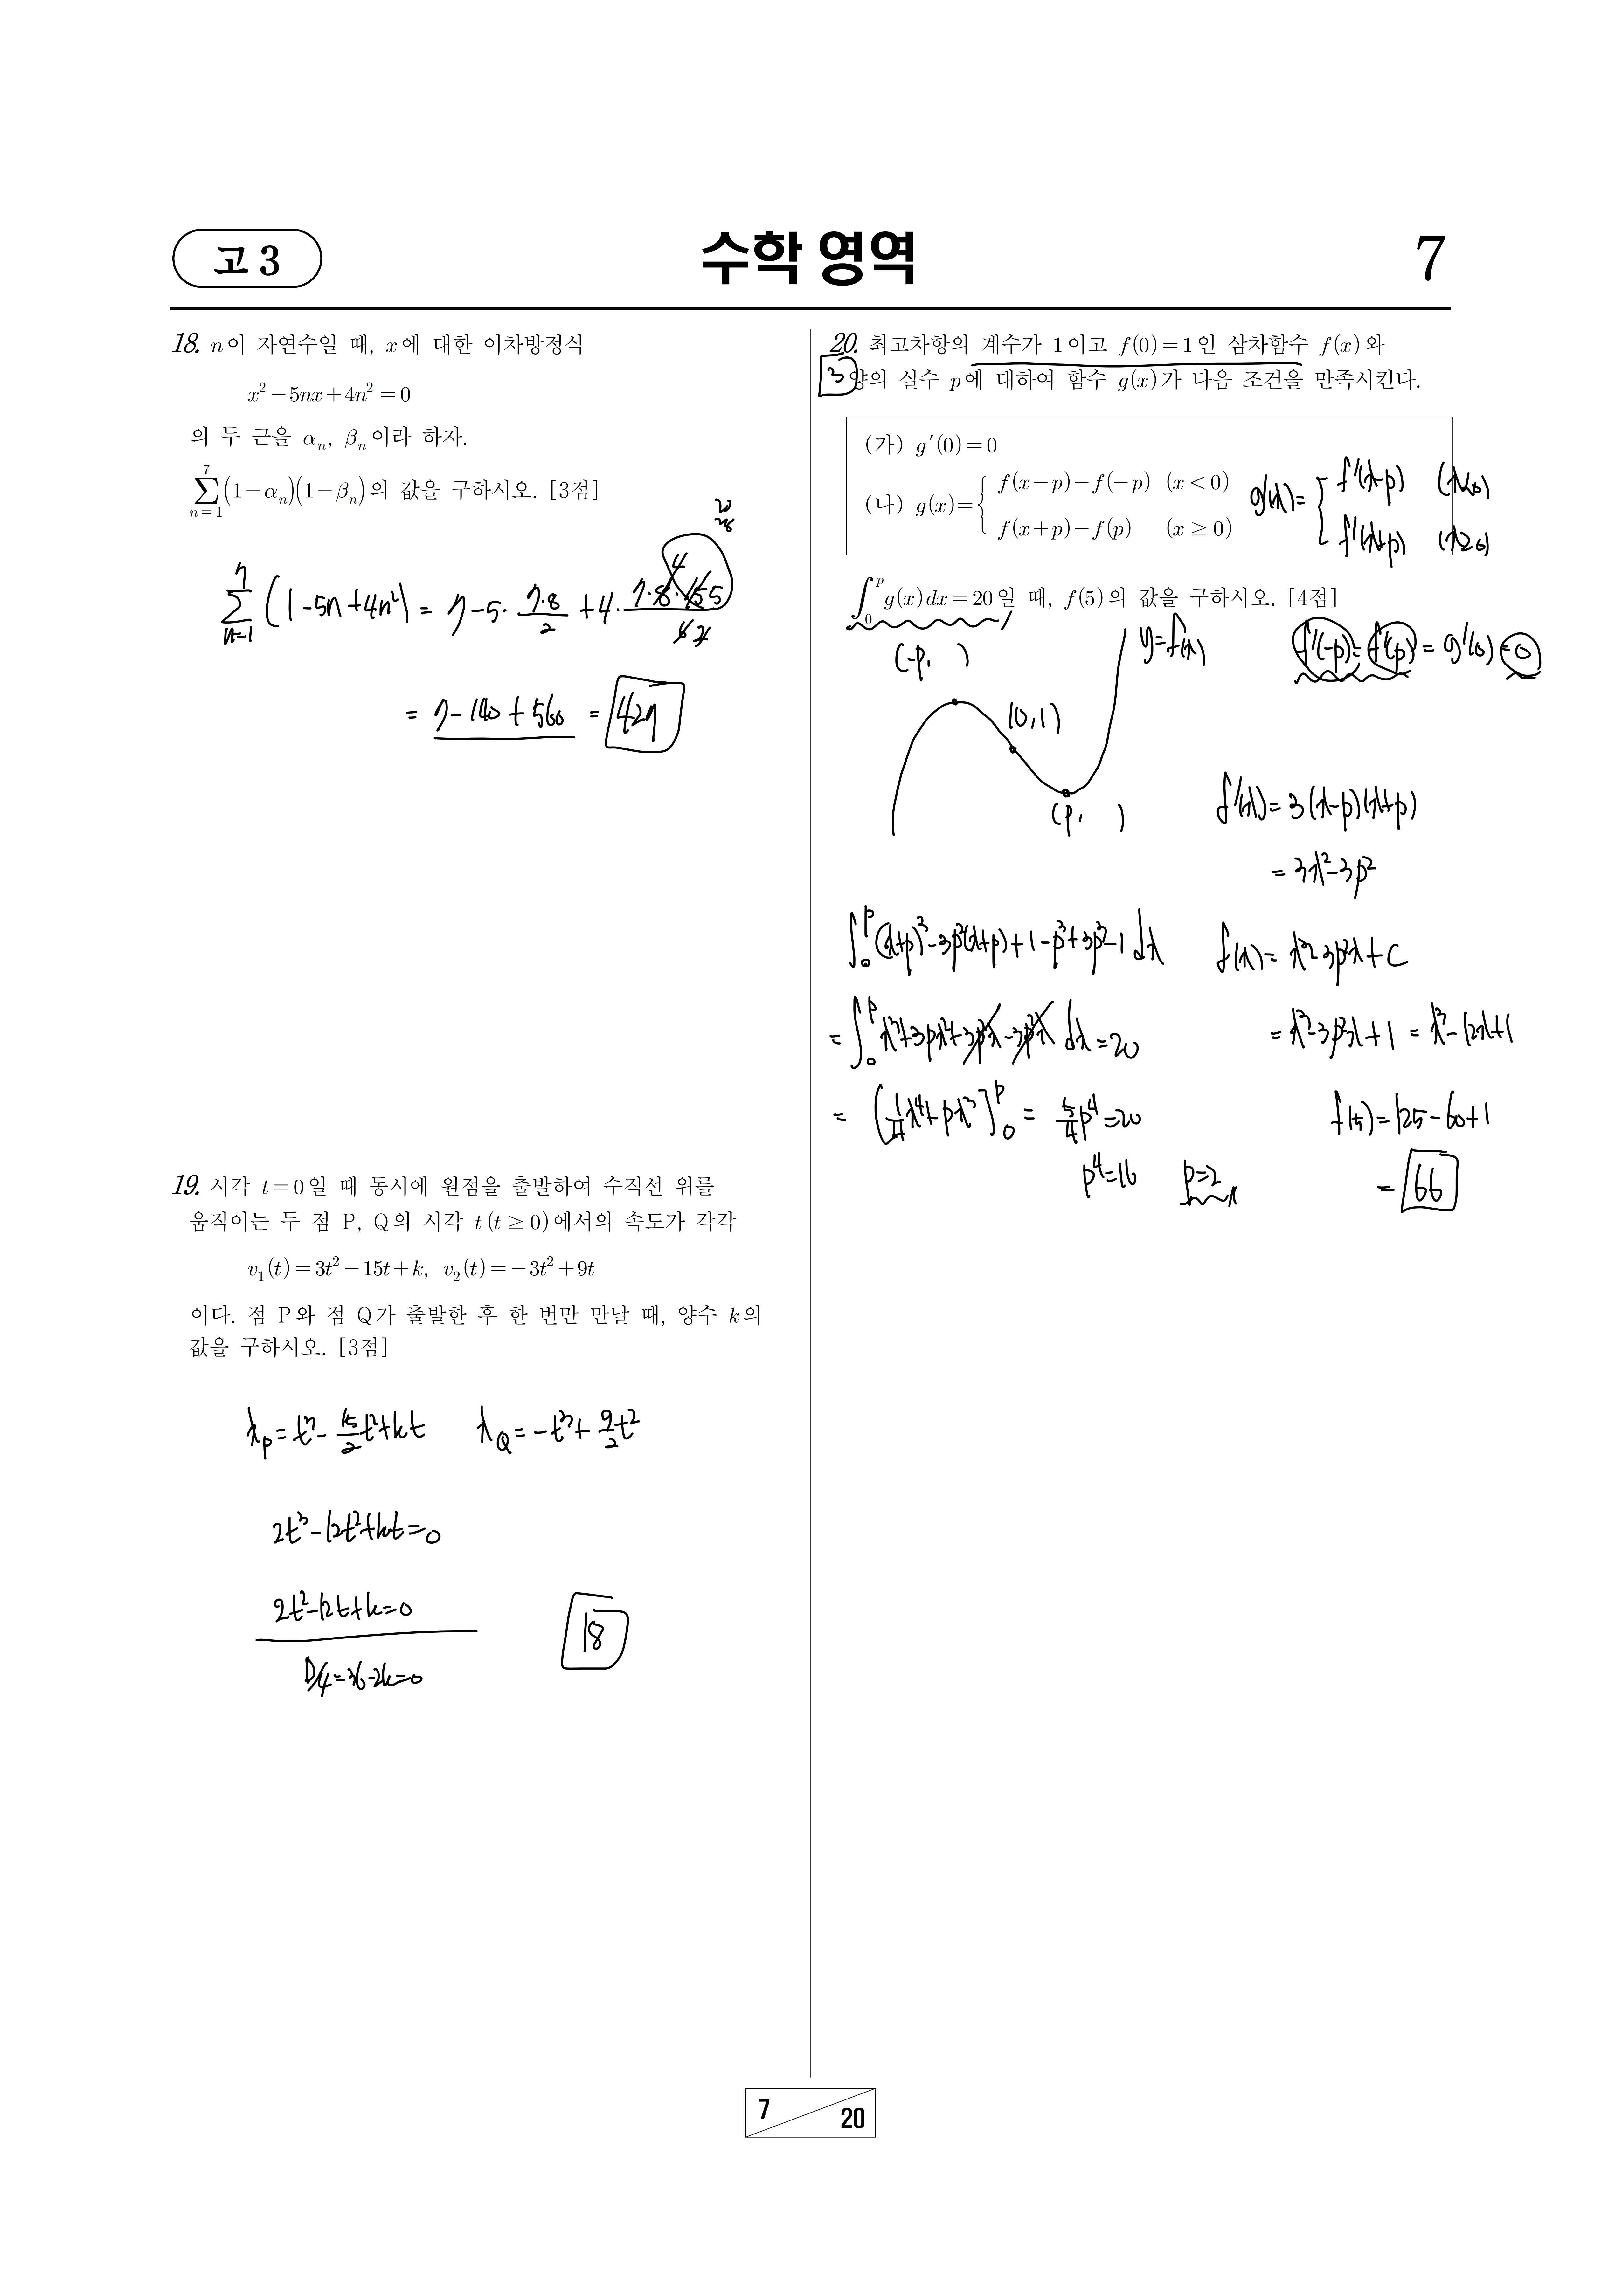 고 3
수학 영역
7
18. n이 자연수일 때, x에 대한 이차방정식
x² − 5nx + 4n² = 0
의 두 근을 αₙ, βₙ이라 하자.
7
∑(1−αₙ)(1−βₙ)의 값을 구하시오. [3점]
n=1
20
28
∑_{n=1}^{7} (1−5n+4n²) = 7−5·7·8/2 + 4·7·8·15/6
= 7−140+560 = 427
19. 시각 t=0일 때 동시에 원점을 출발하여 수직선 위를
움직이는 두 점 P, Q의 시각 t(t≥0)에서의 속도가 각각
v₁(t)=3t²−15t+k, v₂(t)=−3t²+9t
이다. 점 P와 점 Q가 출발한 후 한 번만 만날 때, 양수 k의
값을 구하시오. [3점]
x_P = t³ − 15/2 t² + kt  x_Q = −t³ + 9/2 t²
2t³−12t²+kt=0
2t²−12t+k=0
D/4=36−2k=0
18
20. 최고차항의 계수가 1이고 f(0)=1인 삼차함수 f(x)와
3
양의 실수 p에 대하여 함수 g(x)가 다음 조건을 만족시킨다.
(가) g′(0)=0
(나) g(x)={ f(x−p)−f(−p) (x<0)
f(x+p)−f(p) (x≥0)
g′(x)={ f′(x−p) (x<0)
f′(x+p) (x≥0)
∫₀ᵖ g(x)dx=20일 때, f(5)의 값을 구하시오. [4점]
(−p, )
y=f(x)
f′(−p)=f′(p)=g′(0)=0
(0,1)
(p, )
f′(x)=3(x−p)(x+p)
=3x²−3p²
∫₀ᵖ (x+p)³−3p²(x+p)+1−p³+3p³−1 dx
f(x)=x³−3p²x+C
=∫₀ᵖ x³+3px²+3p²x−3p²x dx=20
=x³−3p²x+1=x³−12x+1
=[1/4 x⁴+px³]₀ᵖ = 5/4 p⁴=20
f(5)=125−60+1
p⁴=16 p=2
=66
7
20